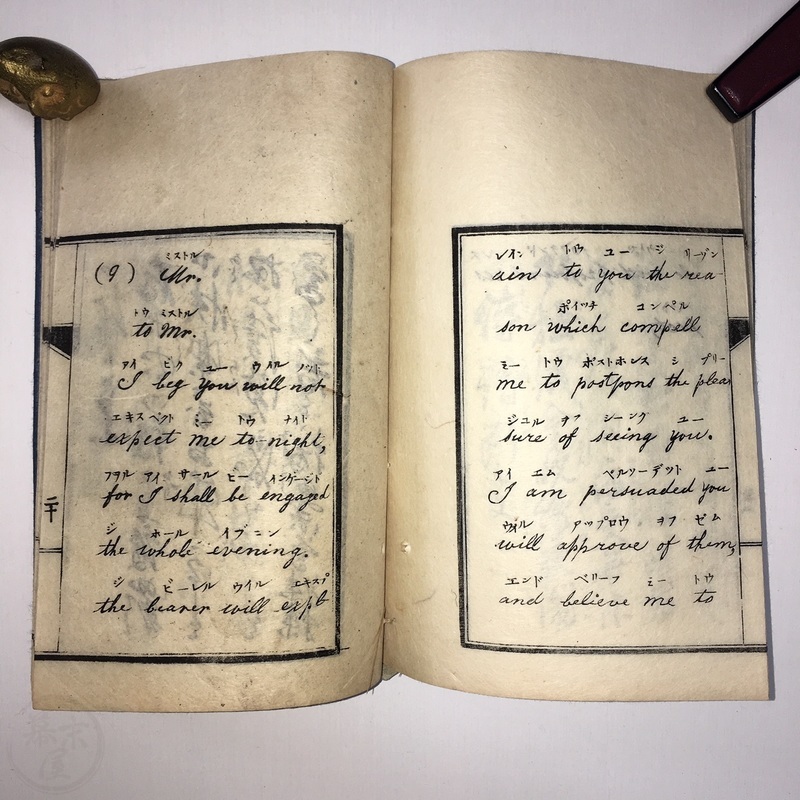 ミストル
(9) Mr.
トウ ミストル
to Mr.
アイ ビク ユー ウイル ノット
I beg you will not
エキスペクト ミー トウ ナイト
expect me to-night,
フヲル アイ サール ビー インゲージド
for I shall be engaged
ジ ホール イブニン
the whole evening.
ジ ビーレル ウイル エキスプ
the bearer will expl
レイン トウ ユー ジ リーゾン
ain to you the rea-
ホイッチ コンペル
son which compell
ミー トウ ポストホンス ジ プリー
me to postpons the plea
ジユル ヲフ シーング ユー
sure of seeing you.
アイ エム ペルソーデット ユー
I am persuaded you
ウイル アップロウ ヲフ ゼム
will approve of them,
エンド ベリーフ ミー トウ
and believe me to